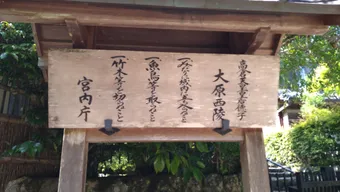 高倉天皇皇后徳子
大原西陵
一、みだりに域内に立入らぬこと
一、魚鳥等を取らぬこと
一、竹木等を切らぬこと
宮内庁